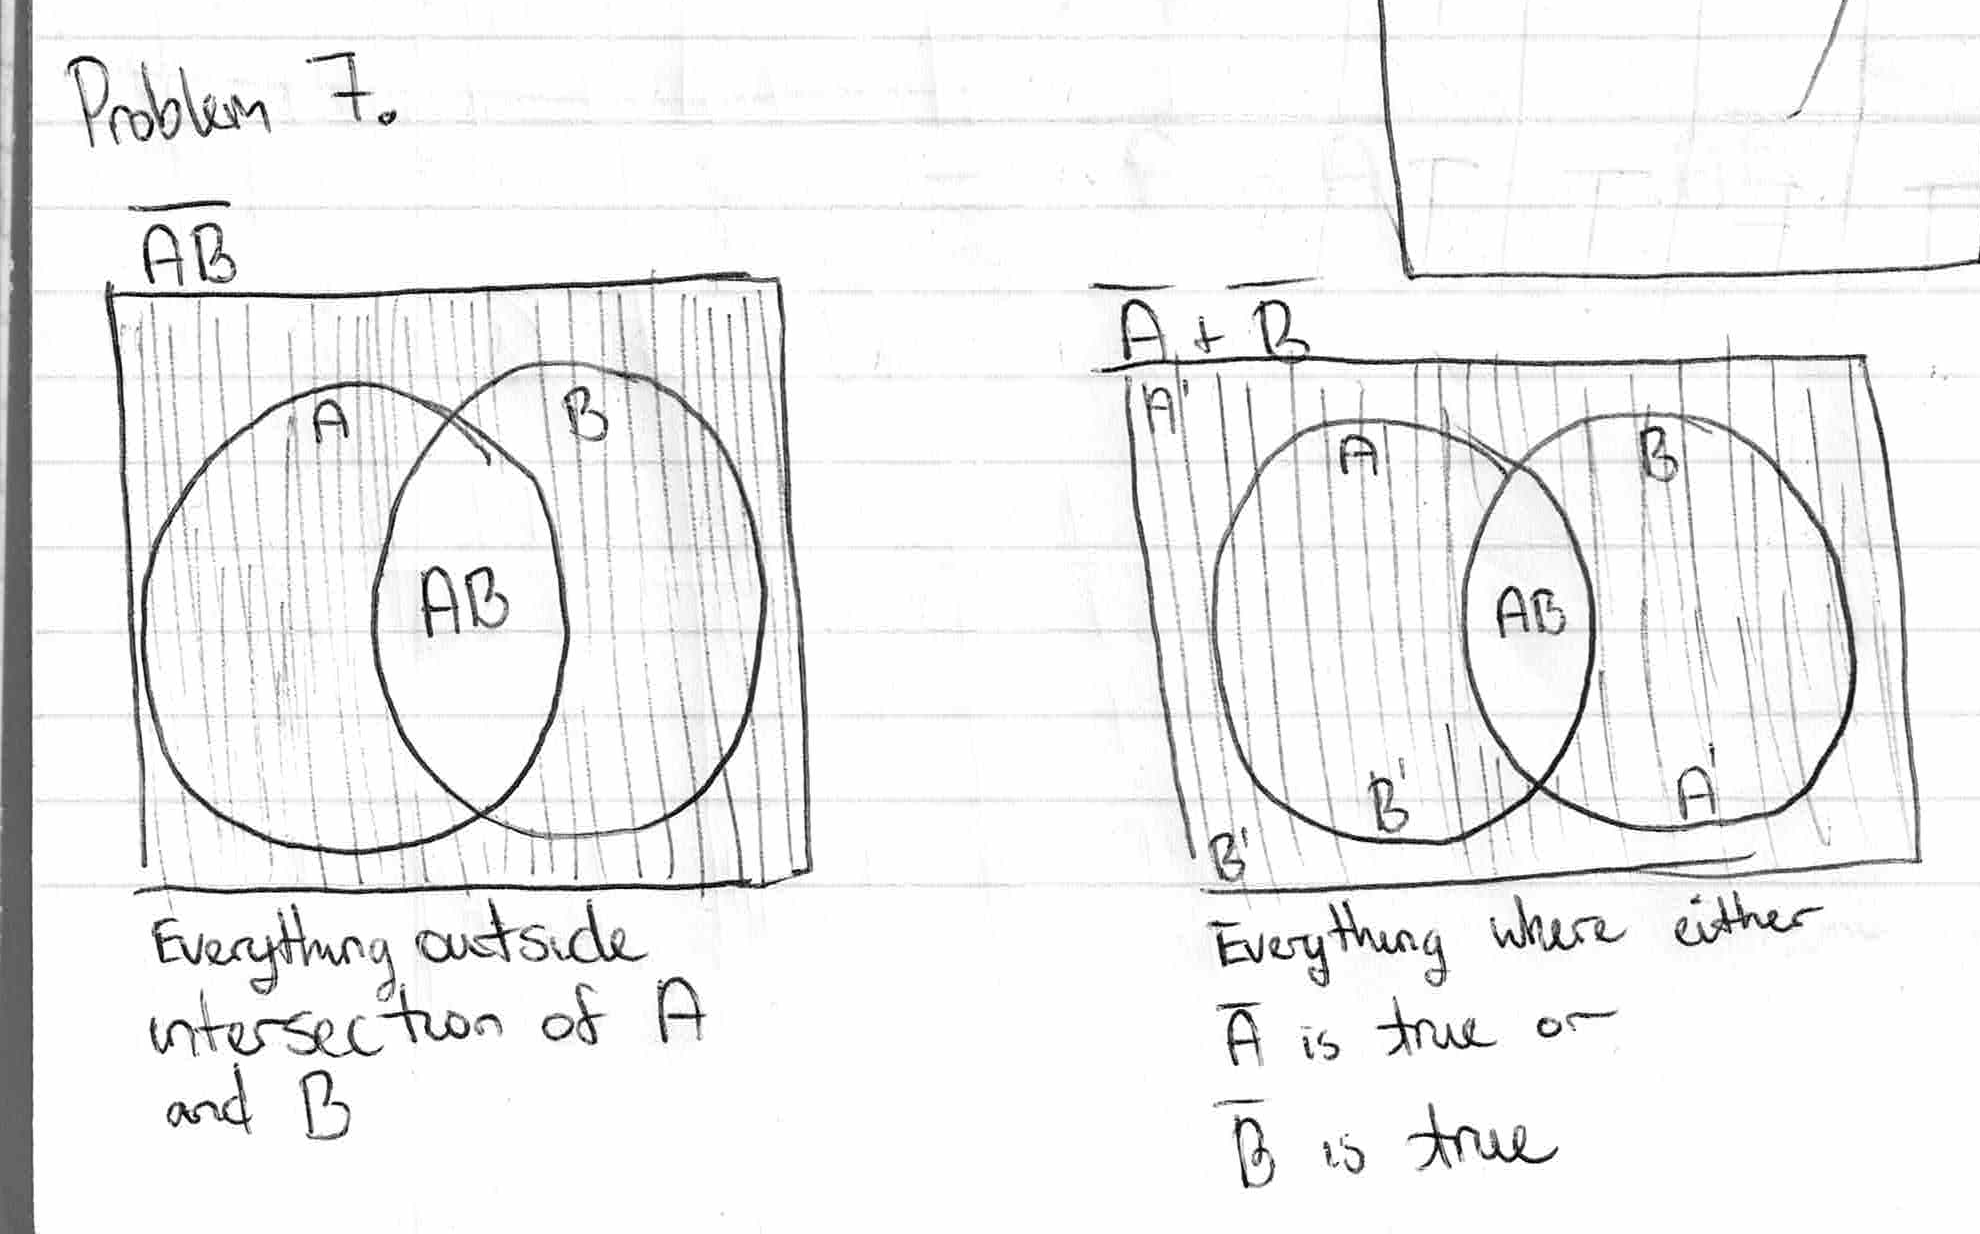 Problem 7.
A̅B̅
A
B
AB
Everything outside
intersection of A
and B
A̅ + B̅
A'
A
B
AB
B'
A'
B'
Everything where either
A̅ is true or
B̅ is true